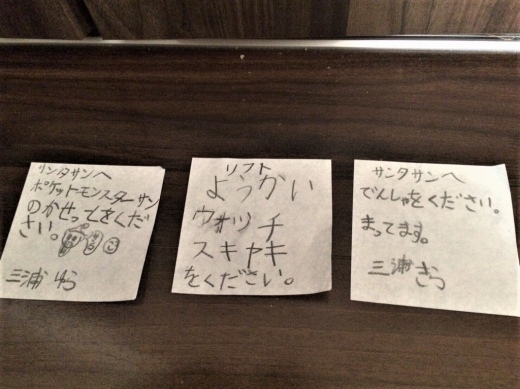 サンタサンへ
ポケットモンスターサン
のかせってをくだ
さい。
三浦 ゆら
ソフト
ようかい
ウォッチ
スキヤキ
をください。
サンタサンへ
でんしゃをください。
まってます。
三浦 きら